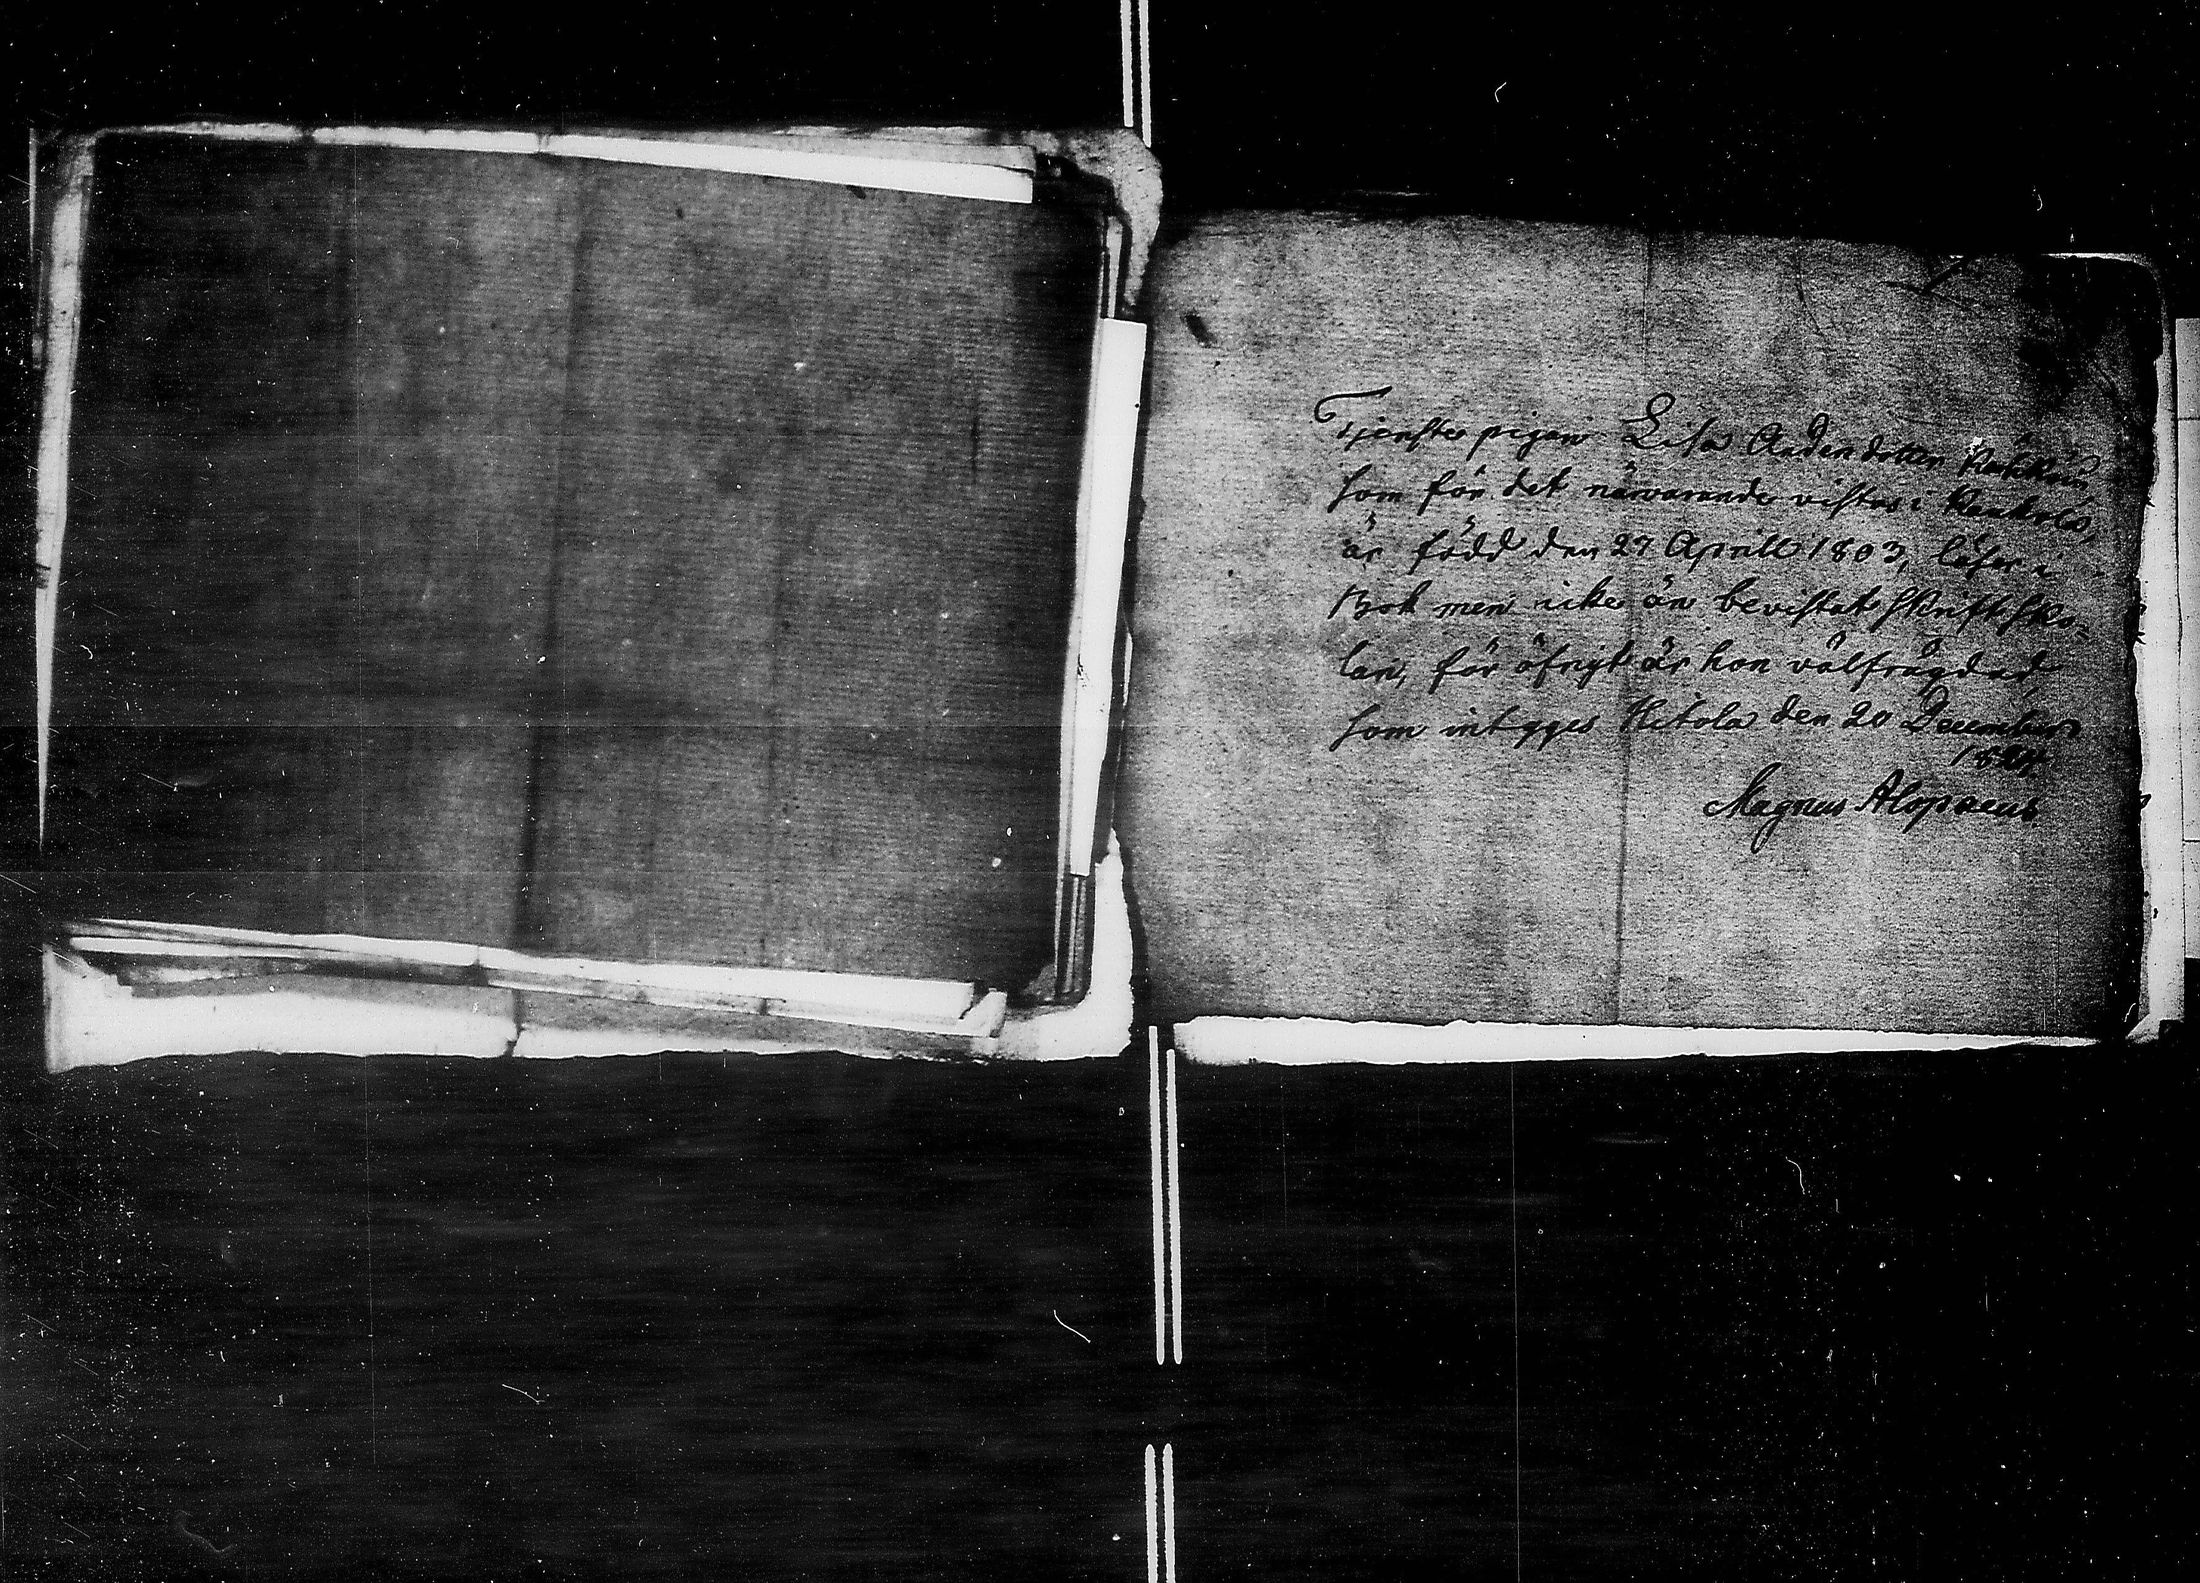 Tjenste pigan Lisa Andersdotter
som för det närvarande vistas i Kaukola,
är född den 27 Aprill 1803, läser i
Bok men icke än bevistat Skriftsko-
lan, för öfrigt är hon välfrägdad,
som intygges Hitola den 20 December
182
Magnus Alopaeus